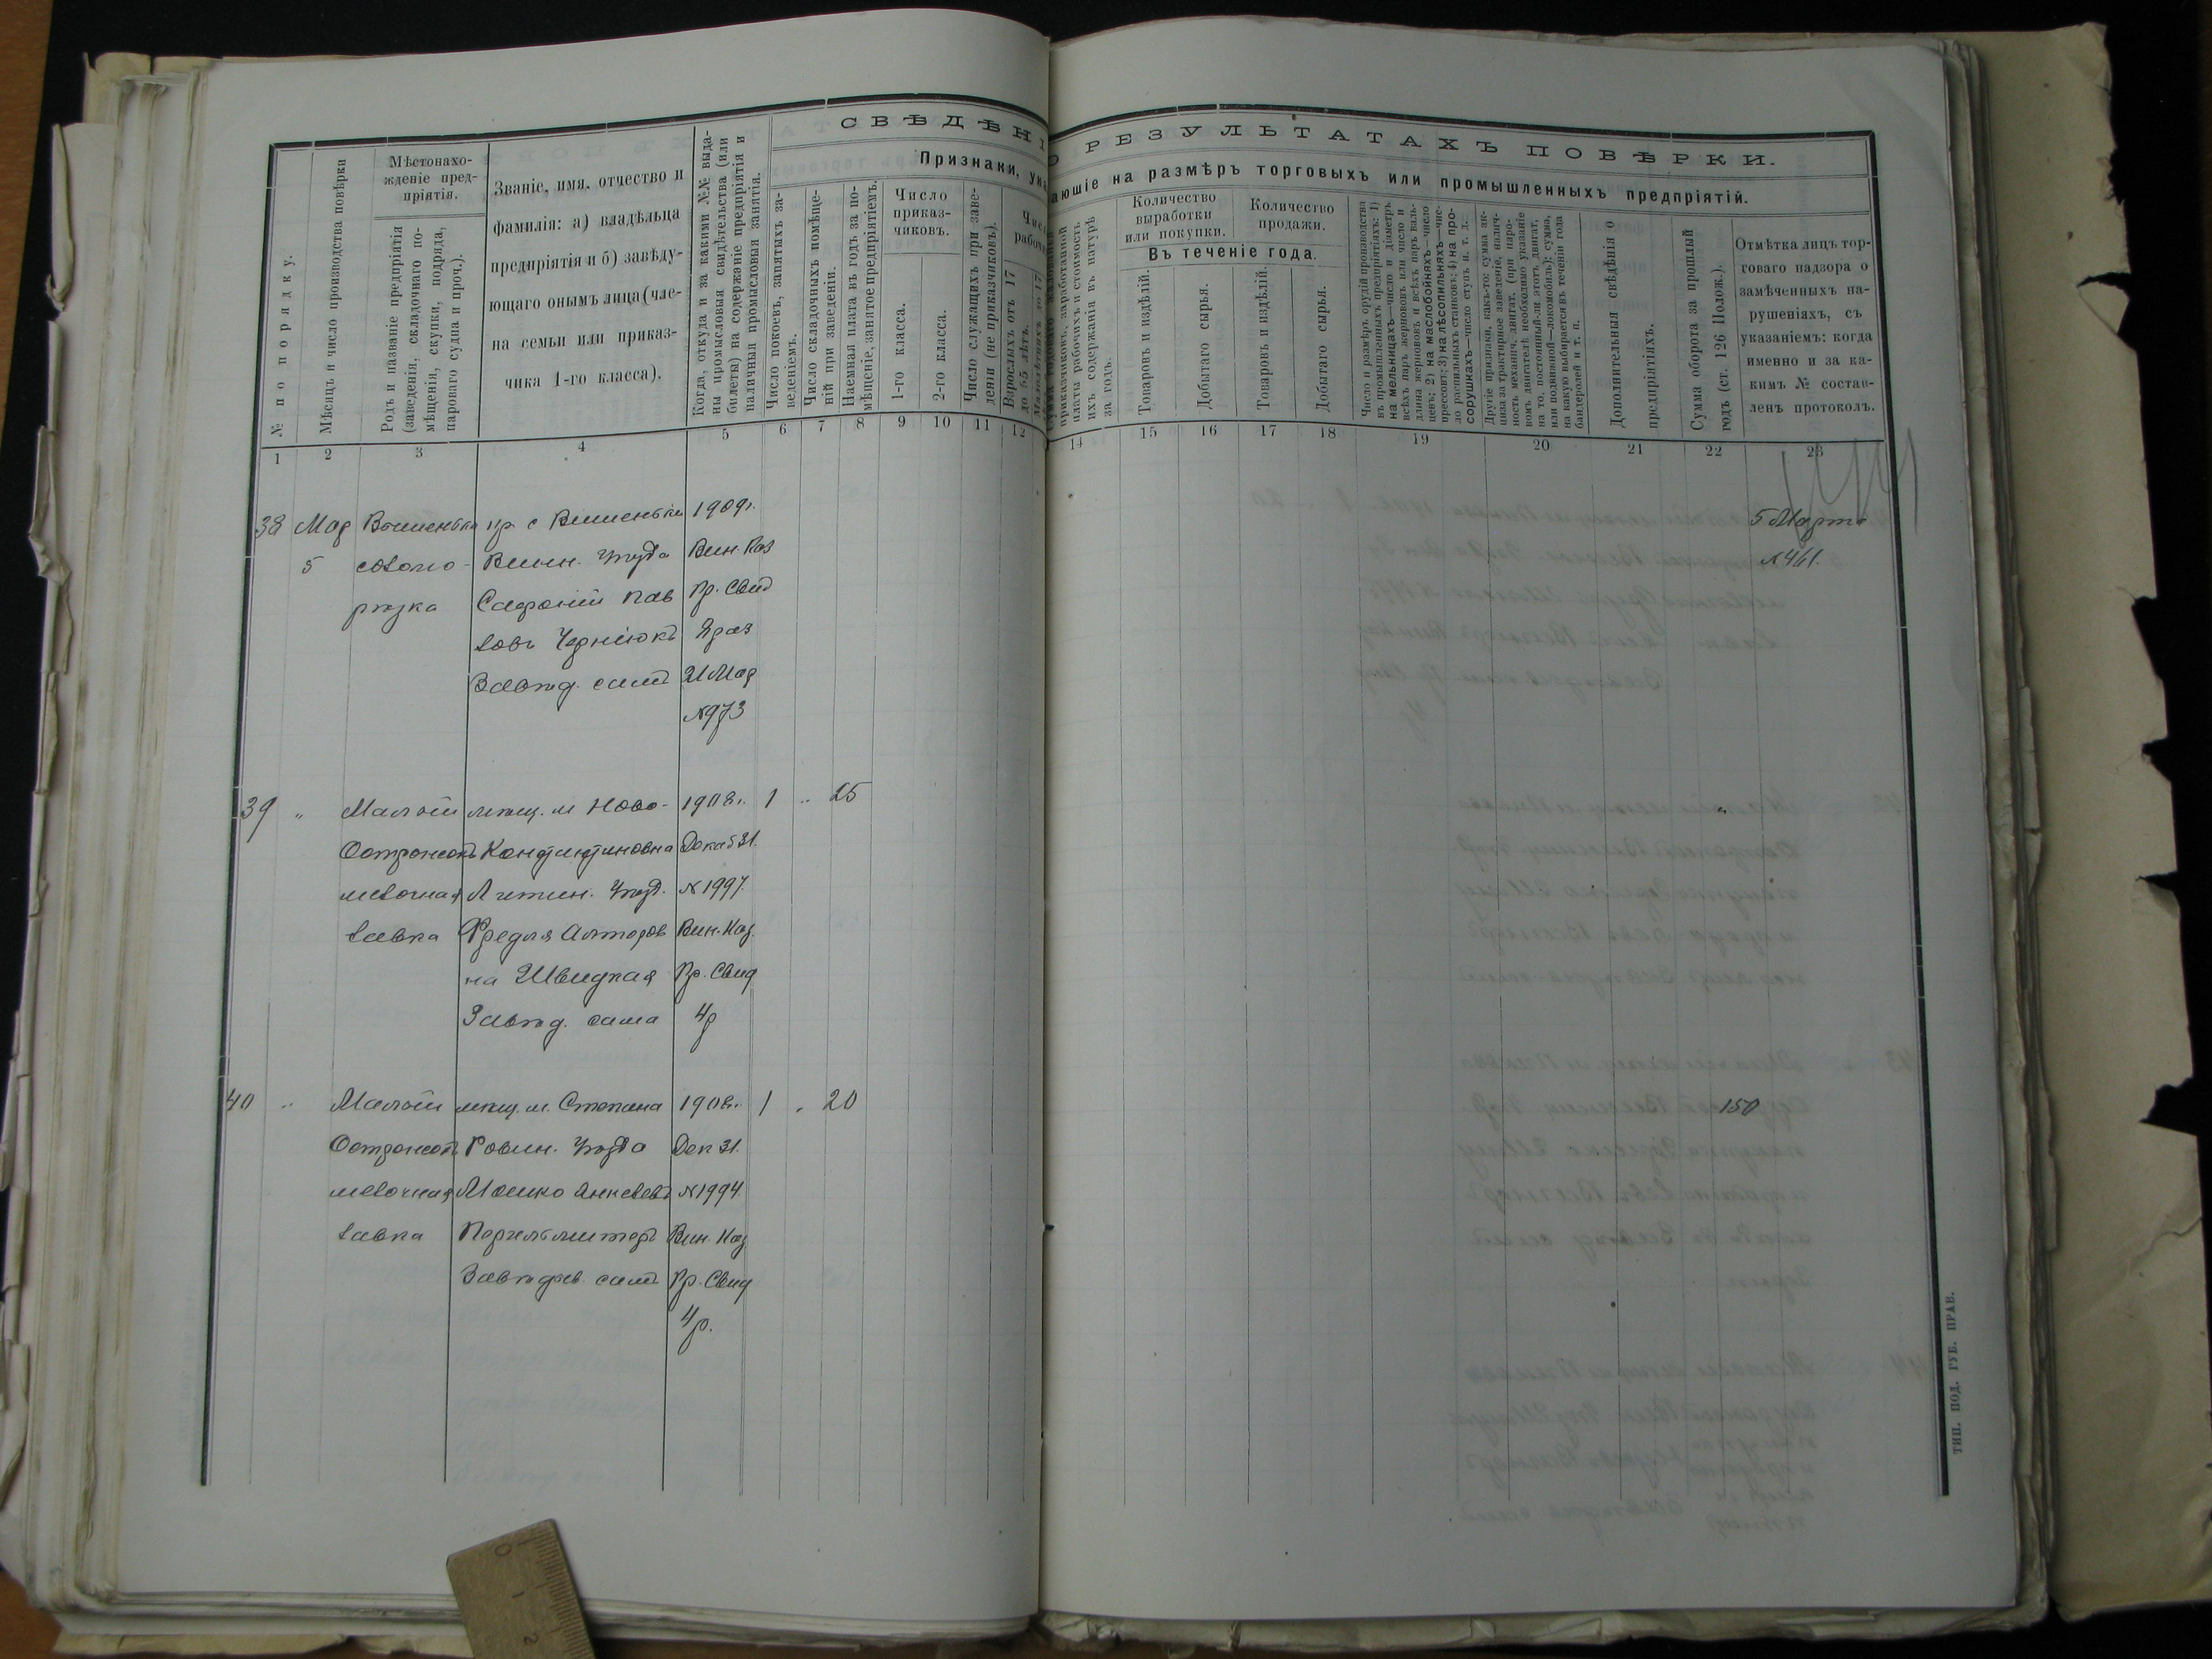 СВѢДѢНІ
О РЕЗУЛЬТАТАХЪ ПОВѢРКИ.
Признаки, ука
ающіе на размѣръ торговыхъ или промышленныхъ предпріятій.
№ по порядку.
Мѣсяцъ и число производства повѣрки
Мѣстонахо-
жденіе пред-
пріятія.
Родъ и названіе предпріятія
(заведенія, складочнаго по-
мѣщенія, скупки, подряда,
пароваго судна и проч.).
Званіе, имя, отчество и
фамилія: а) владѣльца
предпріятія и б) завѣду-
ющаго онымъ лица (чле-
на семьи или приказ-
чика 1-го класса).
Когда, откуда и за какими №№ выда-
ны промысловыя свидѣтельства (или
билеты) на содержаніе предпріятія и
наличныя промысловыя занятія.
Число покоевъ, занятыхъ за-
веденіемъ.
Число складочныхъ помѣще-
ній при заведеніи.
Наемная плата въ годъ за по-
мѣщеніе, занятое предпріятіемъ.
Число
приказ-
чиковъ.
1-го класса.
2-го класса.
Число служащихъ при заве-
деніи (не приказчиковъ).
Взрослыхъ отъ 17
до 65 лѣтъ.
приказчиковъ, заработанной
платы рабочихъ и стоимость
ихъ содержанія въ натурѣ
за годъ.
Количество
выработки
или покупки.
Количество
продажи.
Въ теченіе года.
Товаровъ и издѣлій.
Добытаго сырья.
Товаровъ и издѣлій.
Добытаго сырья.
Число и размѣръ орудій производства
въ промышленныхъ предпріятіяхъ: 1)
на мельницахъ—число и діаметръ
всѣхъ паръ жернововъ или число и
длина жернововъ и всѣхъ паръ валь-
цевъ; 2) на маслобойняхъ—число
прессовъ; 3) на лѣсопильняхъ—чис-
ло распильныхъ станковъ; 4) на про-
сорушкахъ—число ступъ и. т. д.
Другіе признаки, какъ-то: сумма ак-
циза за трактирное заведеніе, налич-
ность механич. двигат. (при паро-
вомъ двигателѣ необходимо указаніе
на то, постоянный-ли этотъ двигат.
или подвижной—локомобиль); сумма,
на какую выбирается въ теченіи года
бандеролей и т. п.
Дополнительныя свѣдѣнія о
предпріятіяхъ.
Сумма оборота за прошлый
годъ (ст. 126 Полож.).
Отмѣтка лицъ тор-
говаго надзора о
замѣченныхъ на-
рушеніяхъ, съ
указаніемъ: когда
именно и за ка-
кимъ № состав-
ленъ протоколъ.
1 2 3 4 5 6 7 8 9 10 11 12
14 15 16 17 18 19 20 21 22 23
38 Мар Вишенька кр. с Вишеньки 1909г.
5 Винн. Уѣзда Вин. Каз
рѣзка Пав Пр. Свид
ловъ
Завѣд. самъ 21 Мар
№973
5 Марта
№461.
39 „ Малый мѣщ. м Ново- 1908г. 1 „ 25
Острожокъ Константиновка Декаб 31.
мелочная Литин. Уѣзд. №1997.
лавка Вин. Каз.
на Швидкая Пр. Свид
Завѣд. сама 4р
40 „ Малый мѣщ. м. Степана 1908г. 1 „ 20
Острожокъ Ровен. Уѣзда Дек 31.
мелочная Мошко Янкелевъ №1994.
лавка Перельмитеръ Вин. Каз
Завѣдыв. самъ Пр. Свид
4р.
150
ТИП. ПОД. ГУБ. ПРАВ.